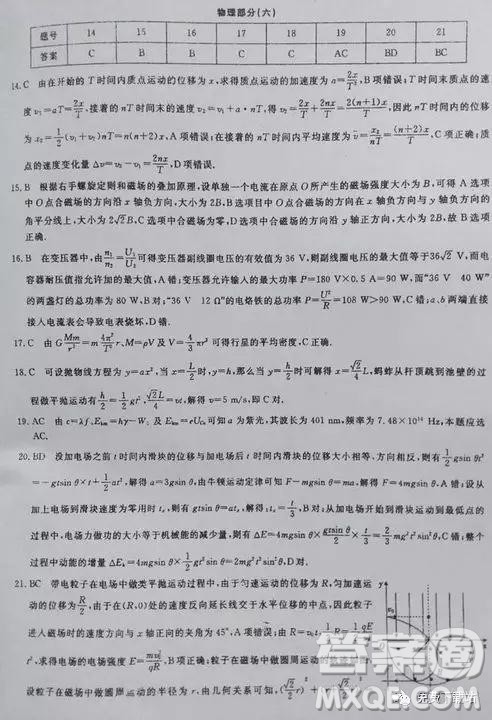 物理部分(六)
题号 14 15 16 17 18 19 20 21
答案 C B B C C AC BD BC
14.C 由在开始的 T 时间内质点运动的位移为 x,求得质点运动的加速度为 a=2x/T²,B项错误;T 时间末质点的速
度 v₁=aT=2x/T,接着的 nT 时间末的速度 v₂=v₁+a·nT,得 v₂=2x/T+2nx/T=2(n+1)x/T,因此 nT 时间内的位移
为 x₂=1/2(v₁+v₂)nT=n(n+2)x,A项错误;在接着的 nT 时间内平均速度为 v̄=x₂/nT=(n+2)x/T,C项正确;质
点的速度变化量 Δv=v₂-v₁=2nx/T,D项错误。
15.B 根据右手螺旋定则和磁场的叠加原理,设单独一个电流在原点 O 所产生的磁场强度大小为 B,可得 A 选项
中 O 点合磁场的方向沿 y 轴负方向,大小为 2B;B 选项中 O 点合磁场的方向在 x 轴负方向与 y 轴负方向的
角平分线上,大小为 2√2B,C 选项中合磁场为零,D 选项中合磁场的方向沿 y 轴正方向,大小为 2B,故 B 选项
正确.
16.B 在变压器中,由 n₁/n₂=U₁/U₂ 可得变压器副线圈电压的有效值为 36 V,则副线圈电压的最大值等于 36√2 V,而电
容器耐压值指允许加的最大值,A错;变压器允许输入的最大功率 P=180 V×0.5 A=90 W,而“36 V 40 W”
的两盏灯的总功率为 80 W,B对;“36 V 12 Ω”的电烙铁的总功率 P=U²/R=108 W>90 W,C错;a、b两端直接
接入电流表会导致电表烧坏,D错.
17.C 由 GMm/r²=m4π²/T²r、M=ρV 及 V=4/3πr³ 可得行星的平均密度,C正确.
18.C 可设抛物线方程为 y=ax²,当 x=L/2 时,y=h,那么当 y=h/2 时可解得 x=√2L/4,蚂蚱从杆顶跳到池壁的过
程做平抛运动有 h/2=1/2gt²,√2L/4=vt,解得 v=5 m/s,即C对.
19.AC 由 c=λf、Ekm=hγ-W、及 Ekm=eUc 可知 a 为紫光,其波长为 401 nm,频率为 7.48×10¹⁴ Hz,本题应选
AC.
20.BD 没加电场之前 t 时间内滑块的位移与加电场后 t 时间内滑块的位移大小相等、方向相反,则有 1/2gsinθt²
=-gtsinθ×t+1/2at²,解得 a=3gsinθ,由牛顿运动定律可知 F-mgsinθ=ma,解得 F=4mgsinθ,A错;设从
加上电场到滑块速度为零用时 t₁,则有 0=-gtsinθ+at₁,解得:t₁=t/3,B对;从加电场开始到滑块运动到最低点的
过程中,电场力做功的大小等于机械能的减少量,则有 ΔE=4mgsinθ×gtsinθ/2×t/3=2/3mg²t²sin²θ,C错;整个
过程中动能的增量 ΔEₖ=4mgsinθ×1/2gt²sinθ=2mg²t²sin²θ,D对.
21.BC 带电粒子在电场中做类平抛运动过程中,由于匀速运动的位移为 R,匀加速运
动的位移为 R/2,故在(R,0)处的速度反向延长线交于水平位移的中点,因此粒子
进入磁场时的速度方向与 x 轴正向的夹角为45°,A项错误;由 R=v₀t,R/2=1/2 qE/m
t²,求得电场的电场强度 E=mv₀²/qR,B项正确;粒子在磁场中做圆周运动的轨迹如图,
设粒子在磁场中做圆周运动的半径为 r,由几何关系可知,
答案圈
MXQE.COM